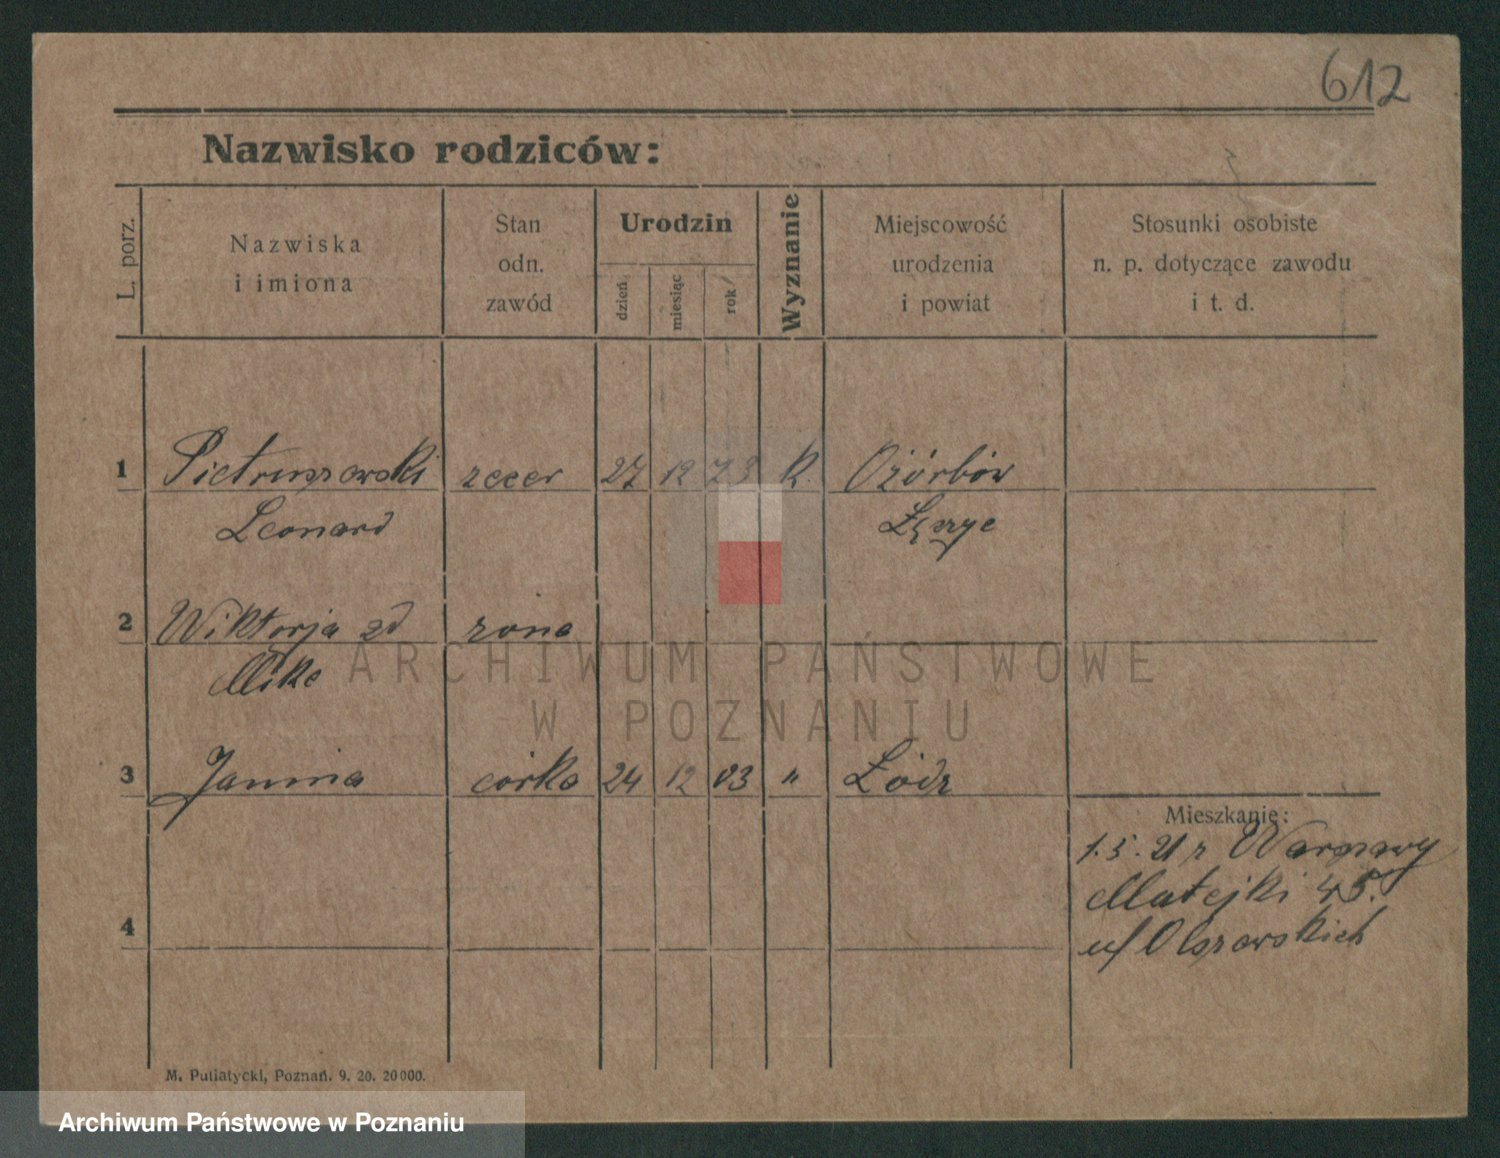 612
Nazwisko rodziców:
L. porz.
Nazwiska
i imiona
Stan
odn.
zawód
Urodzin
dzień
miesiąc
rok
Wyznanie
Miejscowość
urodzenia
i powiat
Stosunki osobiste
n. p. dotyczące zawodu
i t. d.
1 Pietruszewski zecer 27 12 73 k. Ożórków
Leonard Łęczyc
2 Wiktorja zd żona
Mike
ARCHIWUM PAŃSTWOWE
W POZNANIU
3 Janina córka 24 12 03 " Łódź
Mieszkanie:
1.5.21 z Warszawy
Matejki 45.
u/ Olszewskich
4
M. Putiatycki, Poznań. 9. 20. 20000.
Archiwum Państwowe w Poznaniu